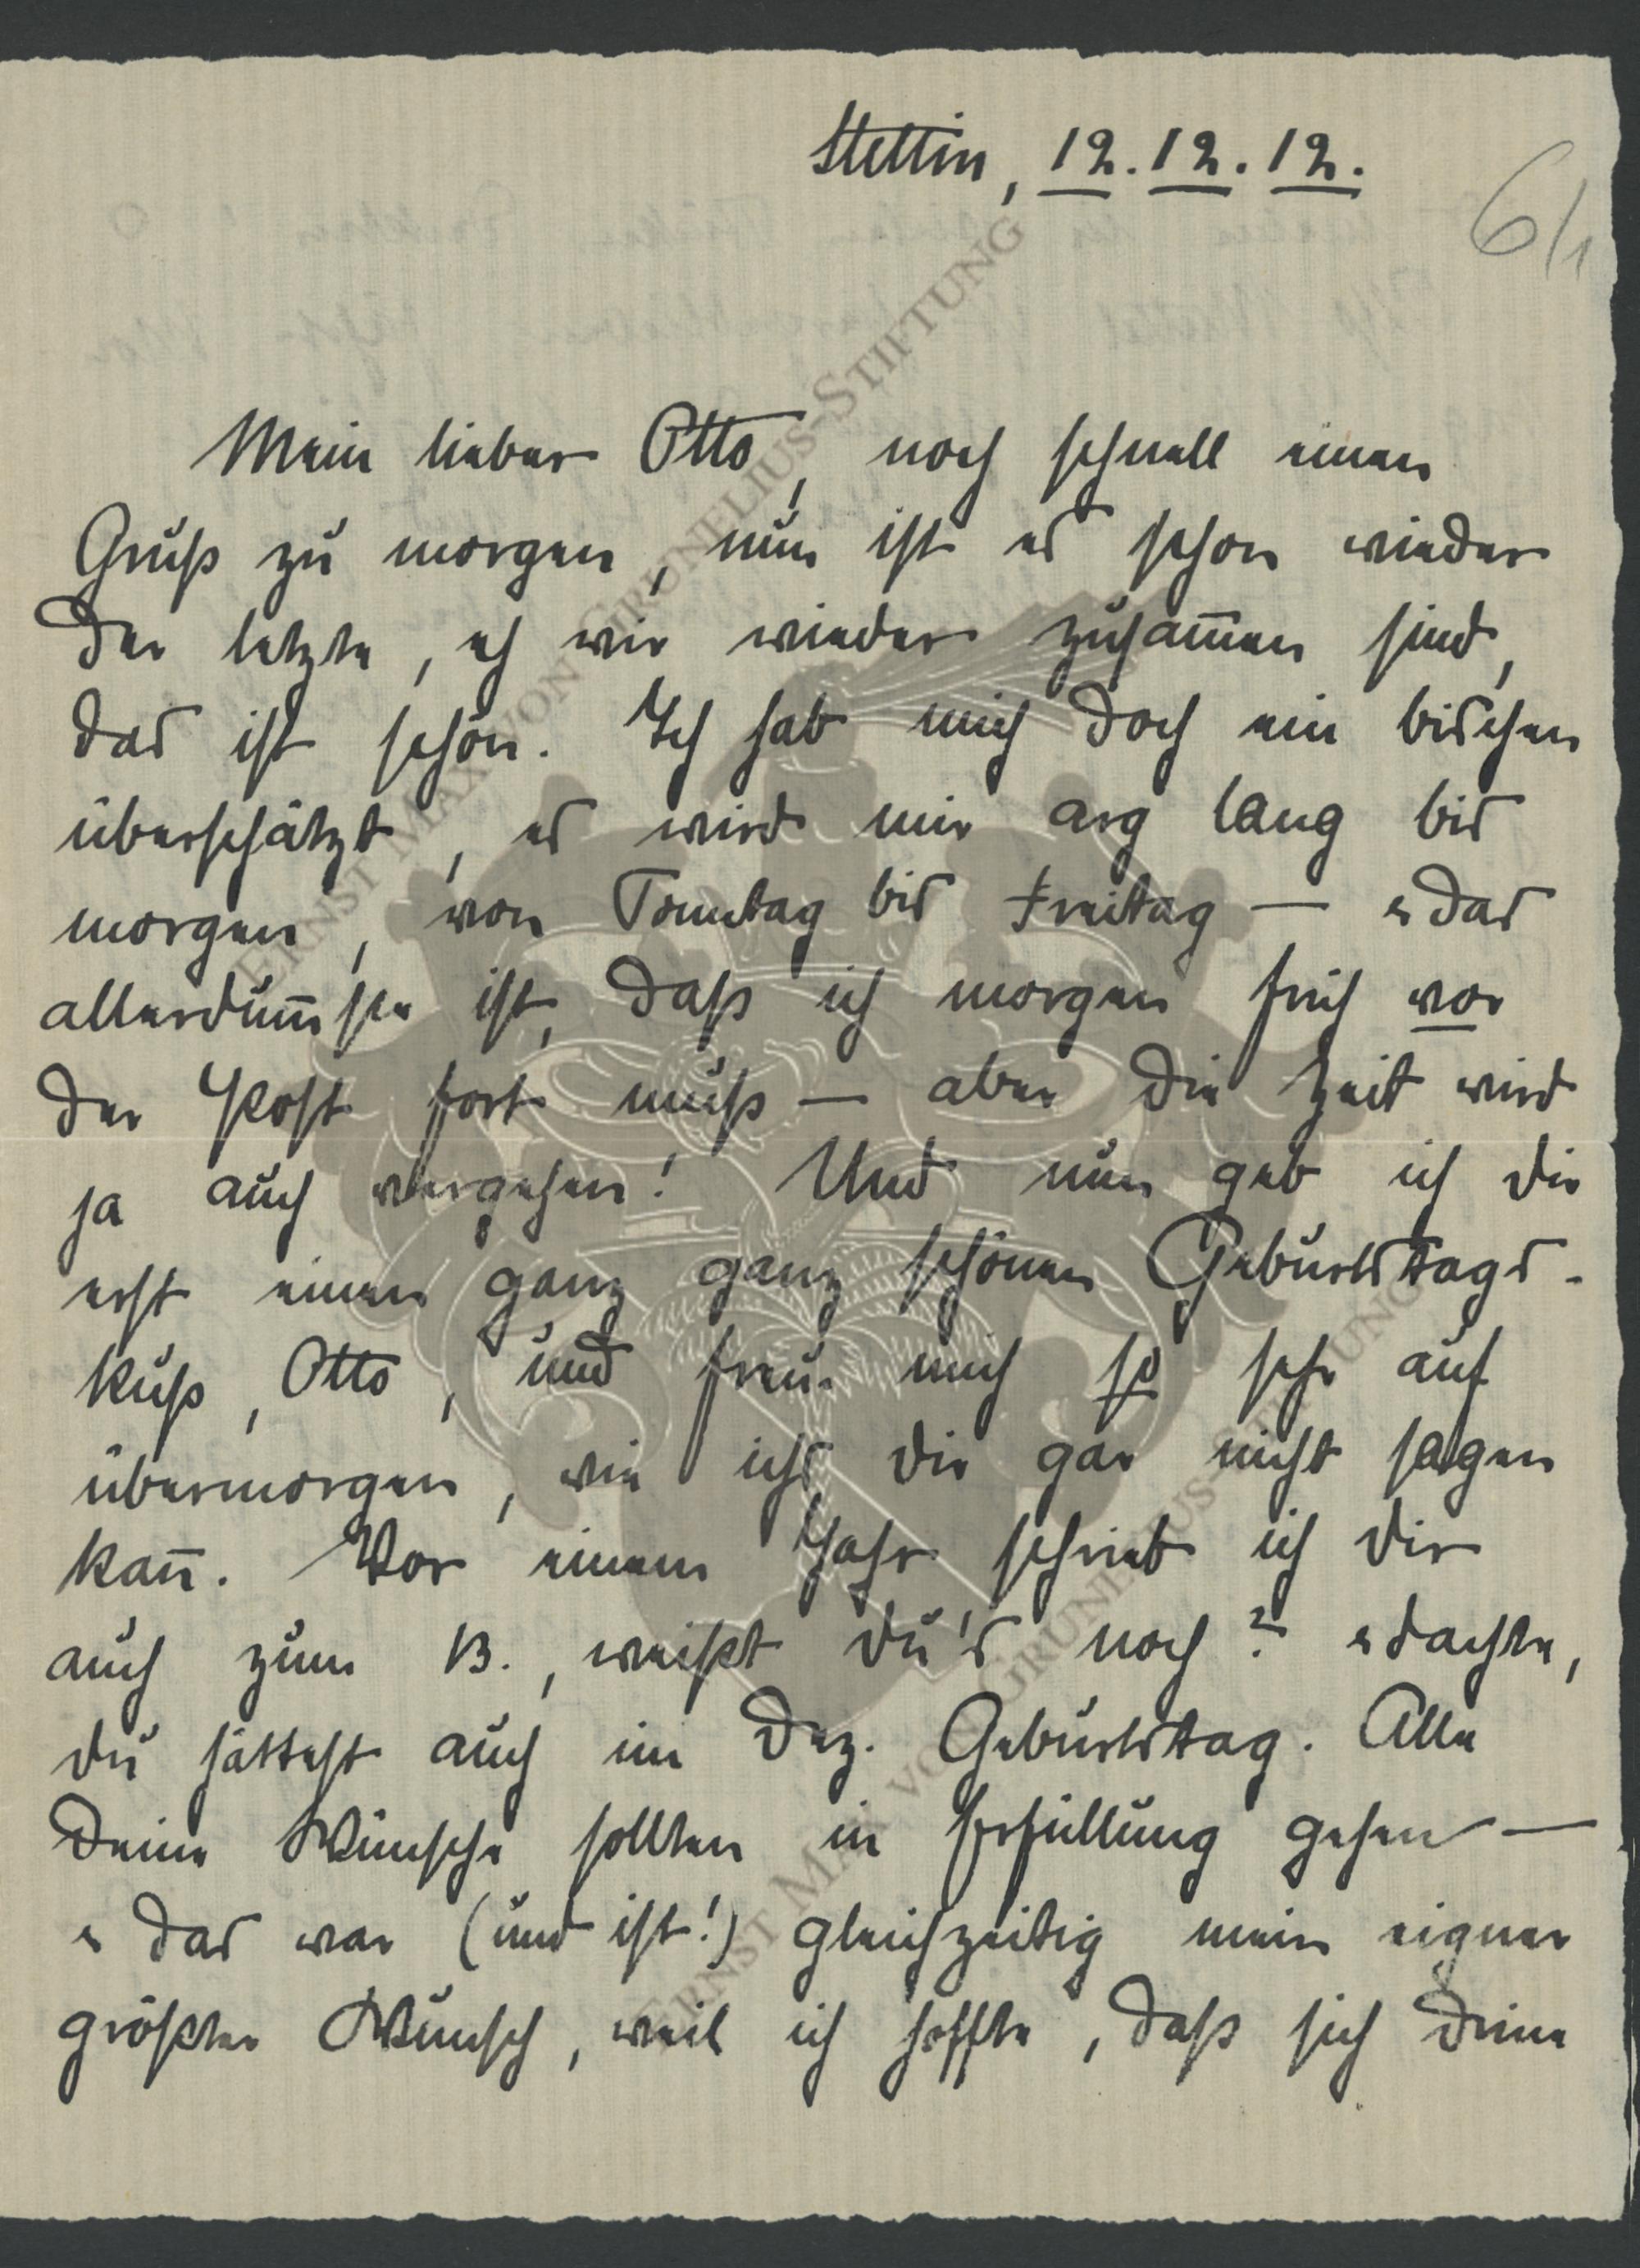 Stettin, 12.12.12.
6/1
Mein lieber Otto, noch schnell einen
Gruß zu morgen, nun ist es schon wieder
der letzte, eh wir wieder zusam̄en sind,
das ist schön. Ich hab mich doch ein bischen
überschätzt, es wird mir arg lang bis
morgen, von Sonntag bis Freitag — u das
allerdum̄ste ist, daß ich morgen früh vor
der Post fort muß — aber die Zeit wird
ja auch vergehen! Und nun geb ich dir
erst einen ganz ganz schönen Geburtstags-
kuß, Otto, und freu mich so sehr auf
übermorgen, wie ichs dir gar nicht sagen
kan̄. Vor einem Jahr schrieb ich dir
auch zum 13., weißt du's noch? u dachte,
du hättest auch im Dez. Geburtstag. Alle
Deine Wünsche sollten in Erfüllung gehen —
u das war (und ist!) gleichzeitig mein eigner
größter Wunsch, weil ich hoffte, daß sich Deine
ERNST MAX VON GRUNELIUS-STIFTUNG
ERNST MAX VON GRUNELIUS-STIFTUNG